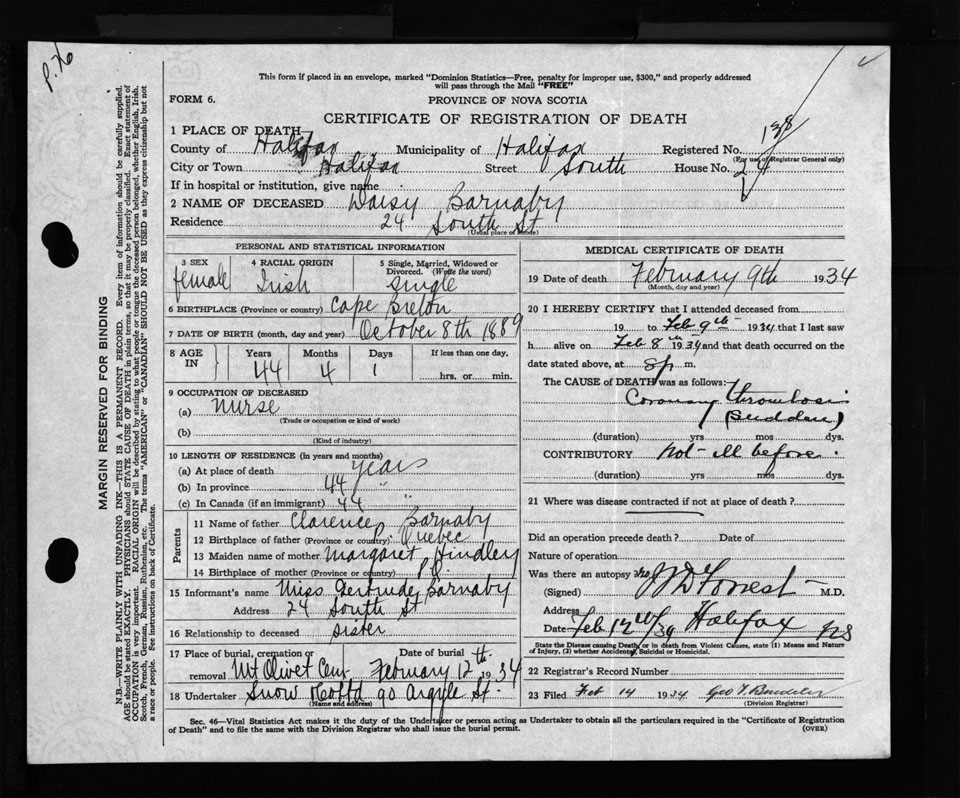 P. 76
This form if placed in an envelope, marked "Dominion Statistics—Free, penalty for improper use, $300," and properly addressed
will pass through the Mail "FREE"
FORM 6.
PROVINCE OF NOVA SCOTIA
CERTIFICATE OF REGISTRATION OF DEATH
1 PLACE OF DEATH—
County of Halifax Municipality of Halifax Registered No. 188
(For use of Registrar General only)
City or Town Halifax Street South House No. 24
If in hospital or institution, give name
2 NAME OF DECEASED Daisy Barnaby
Residence 24 South St.
(Usual place of abode)
PERSONAL AND STATISTICAL INFORMATION
3 SEX female
4 RACIAL ORIGIN Irish
5 Single, Married, Widowed or Divorced. (Write the word) single
6 BIRTHPLACE (Province or country) Cape Breton
7 DATE OF BIRTH (month, day and year) October 8th 1889
8 AGE IN Years 44 Months 4 Days 1 If less than one day, hrs. or min.
9 OCCUPATION OF DECEASED
(a) Nurse
(Trade or occupation or kind of work)
(b)
(Kind of industry)
10 LENGTH OF RESIDENCE (in years and months)
(a) At place of death years
(b) In province 44 "
(c) In Canada (if an immigrant) 44 "
Parents
11 Name of father Clarence Barnaby
12 Birthplace of father (Province or country) Quebec
13 Maiden name of mother Margaret Hindley
14 Birthplace of mother (Province or country)
15 Informant's name Miss Gertrude Barnaby
Address 24 South St
16 Relationship to deceased sister
17 Place of burial, cremation or removal Mt Olivet Cem Date of burial February 12th 1934
18 Undertaker Snow & Co Ltd 90 Argyle St.
(Name and address)
MEDICAL CERTIFICATE OF DEATH
19 Date of death February 9th 1934
(Month, day and year)
20 I HEREBY CERTIFY that I attended deceased from
19 to Feb 9th 1934 that I last saw
h alive on Feb 8th 1934 and that death occurred on the
date stated above, at 8p m.
The CAUSE of DEATH was as follows:
Coronary thrombosis
(Sudden)
(duration) yrs mos dys.
CONTRIBUTORY Not ill before.
(duration) yrs mos dys.
21 Where was disease contracted if not at place of death?
Did an operation precede death? Date of
Nature of operation
Was there an autopsy no
(Signed) Forrest M.D.
Address Halifax NS
Date Feb 12th/34
State the Disease causing Death, or in death from Violent Causes, state (1) Means and Nature of Injury, (2) whether Accidental, Suicidal or Homicidal.
22 Registrar's Record Number
23 Filed Feb 14 1934 Geo
(Division Registrar)
Sec. 46—Vital Statistics Act makes it the duty of the Undertaker or person acting as Undertaker to obtain all the particulars required in the "Certificate of Registration
of Death" and to file the same with the Division Registrar who shall issue the burial permit.
(OVER)
MARGIN RESERVED FOR BINDING
N.B.—WRITE PLAINLY WITH UNFADING INK—THIS IS A PERMANENT RECORD. Every item of information should be carefully supplied.
AGE should be stated EXACTLY. PHYSICIANS should STATE CAUSE OF DEATH in plain terms, so that it may be properly classified. Exact statement of
OCCUPATION is very important. RACIAL ORIGIN will be described by stating to what people or tongue the deceased person belonged, whether English, Irish,
Scotch, French, German, Russian, Ruthenian, etc. The terms "AMERICAN" or "CANADIAN" SHOULD NOT BE USED as they express citizenship but not
a race or people. See instructions on back of Certificate.